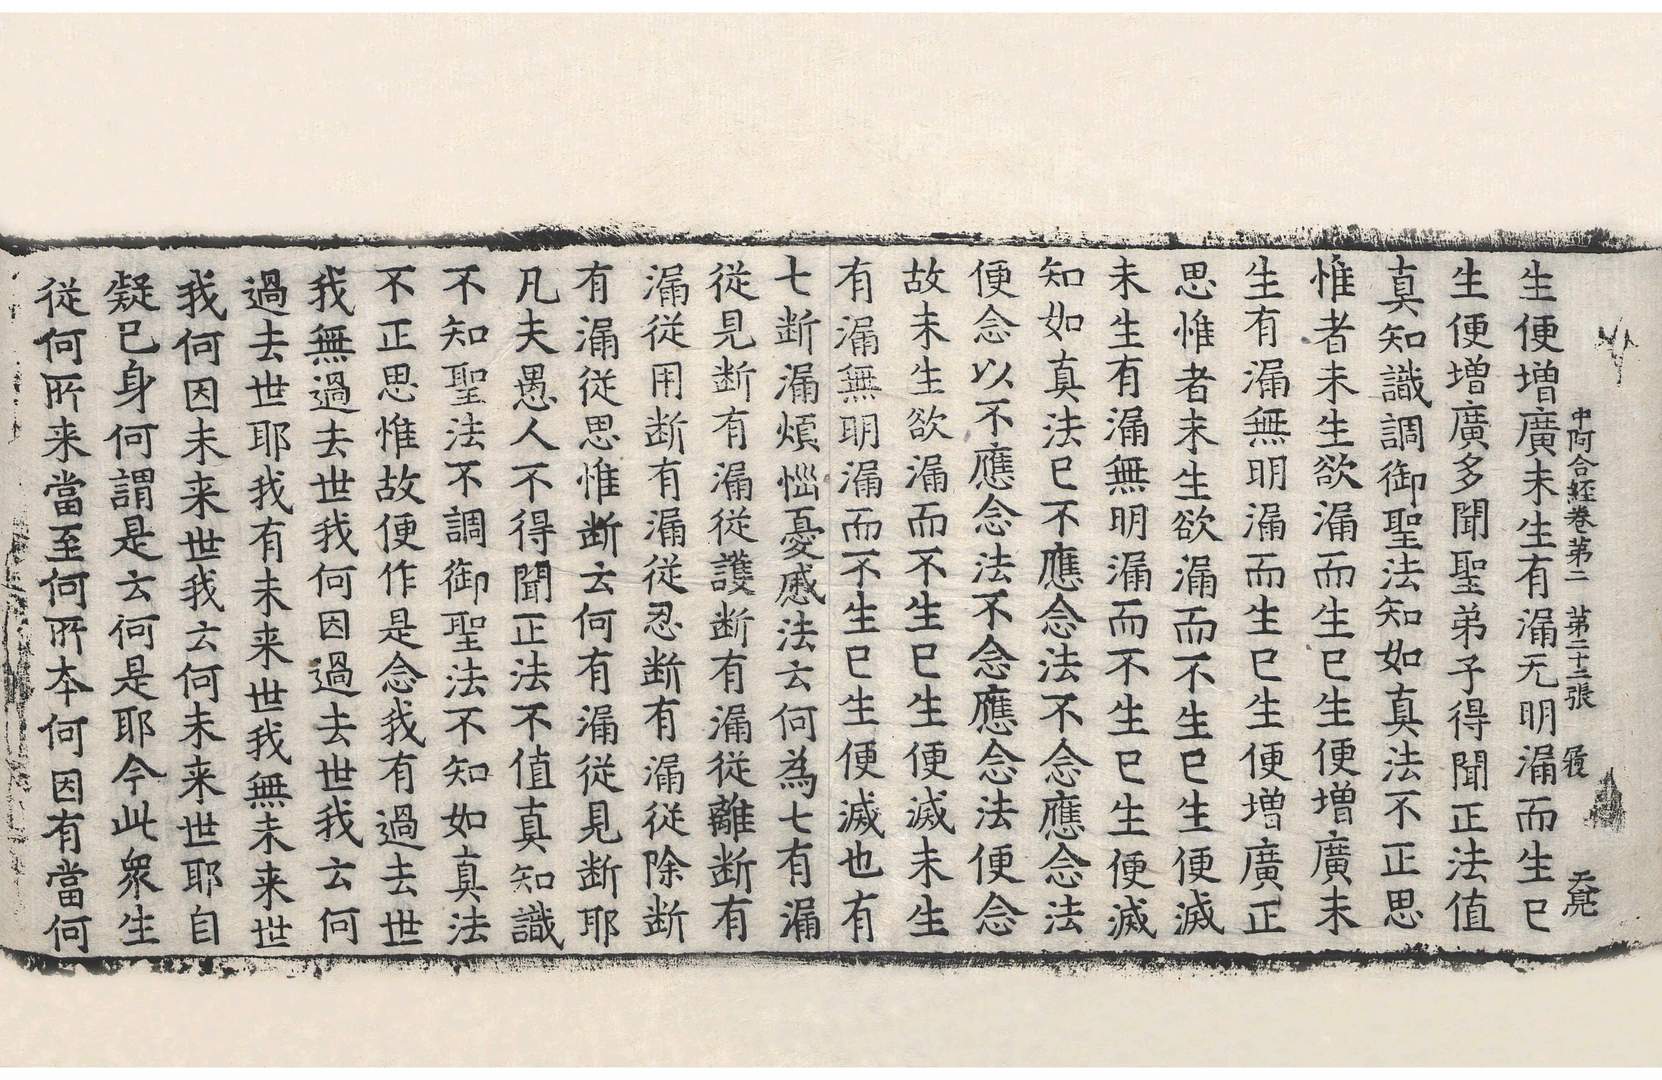 中阿含經卷第二　第二十三張　　天亮
生便增廣未生有漏无明漏而生已
生便增廣多聞聖弟子得聞正法值
真知識調御聖法知如真法不正思
惟者未生欲漏而生已生便增廣未
生有漏無明漏而生已生便增廣正
思惟者未生欲漏而不生已生便滅
未生有漏無明漏而不生已生便滅
知如真法已不應念法不念應念法
便念以不應念法不念應念法便念
故未生欲漏而不生已生便滅未生
有漏無明漏而不生已生便滅也有
七断漏煩惱憂慼法云何為七有漏
從見断有漏從護断有漏從離断有
漏從用断有漏從忍断有漏從除断
有漏從思惟断云何有漏從見断耶
凡夫愚人不得聞正法不值真知識
不知聖法不調御聖法不知如真法
不正思惟故便作是念我有過去世
我無過去世我何因過去世我云何
過去世耶我有未来世我無未来世
我何因未来世我云何未来世耶自
疑已身何謂是云何是耶今此衆生
從何所来當至何所本何因有當何